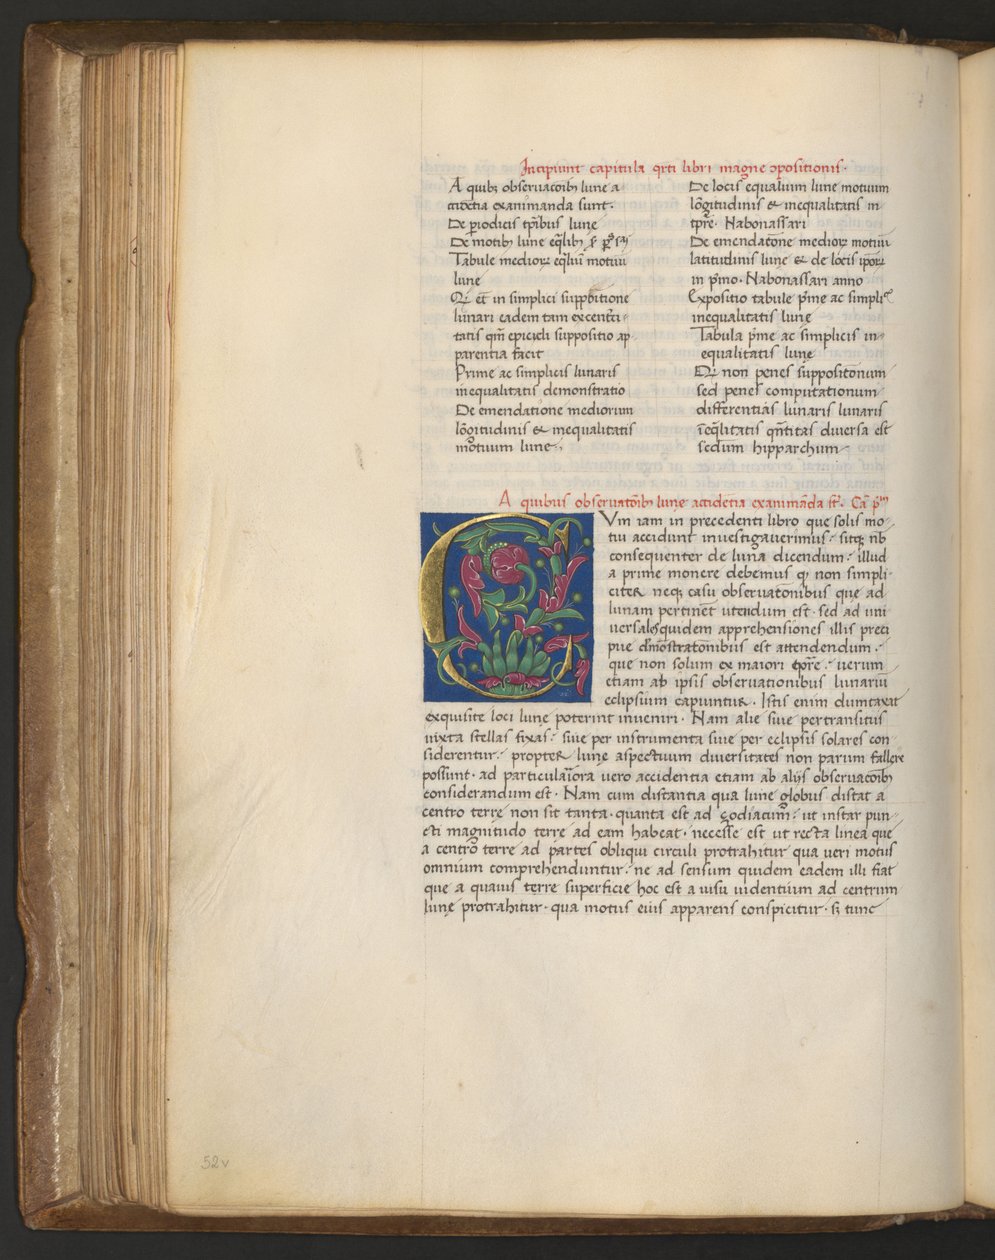 Incipiunt capitula qrti libri magne ɔpositionis·
A quibꝫ observacoib lune a
ccidētia examinanda sunt·
De periodicis tp̄ibus lune
De motib lune eq̄lib
Tabule medioꝝ eq̄liū motuū
lune
Qꝫ et in simplici suppositione
lunari eadem tam excentri-
tatis qm̄ epicicli suppositio ap-
parentia facit
Prime ac simplicis lunaris
inequalitatis demonstratio
De emendatione mediorum
lōgitudinis & inequalitatis
motuum lune
De locis equalium lune motuum
lōgitudinis & inequalitatis in
tp̄re· Nabonassari
De emendatōne medioꝝ motuū
latitudinis lune & de locis ipoꝝ
in p̄mo· Nabonassari anno
Expositio tabule p̄me ac simplic
inequalitatis lune
Tabula p̄me ac simplicis in-
equalitatis lune
Qꝫ non penes suppositōnum
sed penes computationum
differentias lunaris lunaris
īeq̄litatis q̄ntitas diversa est
secdum hipparchum
A quibus observatōib lune accidētia examināda sūt· Ca p̄m
CVm iam in precedenti libro que solis mo-
tui accidunt investigaverimus: sitqꝫ nb
consequenter de luna dicendum: illud
a prime monere debemus qꝫ non simpli-
citer neqꝫ casu observatōnibus que ad
lunam pertinēt utendum est· sed ad uni
versales quidem apprehensiones illis preci
pue dmōstratōnibus est attendendum·
que non solum ex maiori tp̄re: verum
etiam ab ipsis observationibus lunariū
eclipsium capiuntur· Istis enim dumtaxat
exquisite loci lune poterint inveniri· Nam alie sive pertransitus
iuxta stellas fixas: sive per instrumenta sive per eclipsis solares con-
siderentur: propter lune aspectuum diversitates non parum fallere
possunt· ad particulariora vero accidentia etiam ab aliis observacōib
considerandum est· Nam cum distantia qua lune globus distat a
centro terre non sit tanta· quanta est ad çodiacum: ut instar pun-
cti magnitudo terre ad eam habeat· necesse est ut recta linea que
a centro terre ad partes obliqui circuli protrahitur qua veri motus
omnium comprehenduntur: ne ad sensum quidem eadem illi fiat
que a quavis terre superficie hoc est a visu videntium ad centrum
lune protrahitur· qua motus eius apparens conspicitur· sꝫ tunc
52v